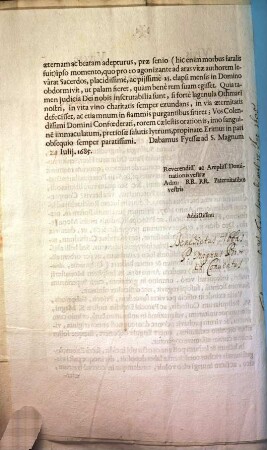 æternam ac beatam adepturus, præ senio (hic enim morbus fatalis
fuit) ipso momento, quo pro eo agonizante ad aras vitæ authorem li-
tàrat Sacerdos, placidissimè, ac piissimè 15. elapsi mensis in Domino
obdormivit, ut palam fieret, quàm benè cum suam egisset. Quia ta-
men judicia Dei nobis inscrutabilia sunt, si fortè lagenula Othmari
nostri, in vita vino charitatis semper exundans, in via æternitatis
defecisset, ac etiamnum in flammis purgantibus sitiret; Vos Colen-
dissimi Domini Confœderati, rorem cælestis orationis, imo sangui-
nè immaculatum, pretiosæ salutis lytrum, propinate. Erimus in pari
obsequio semper paratissimi. Dabamus Fyessæ ad S. Magnum
Julij, 1685.
Reverendiss. ac Ampliss. Domi-
nationis vestræ
Adm. RR. RR. Paternitatibus
vestris
Addictissimi
Benedictus
P.
et Conventus